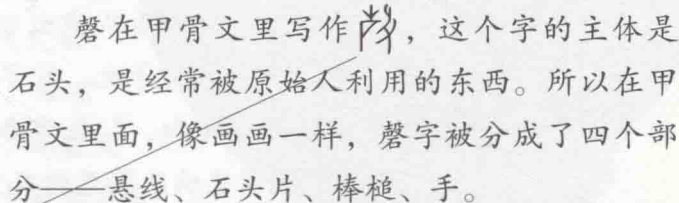 磬在甲骨文里写作，这个字的主体是
石头，是经常被原始人利用的东西。所以在甲
骨文里面，像画画一样，磬字被分成了四个部
分——悬线、石头片、棒槌、手。